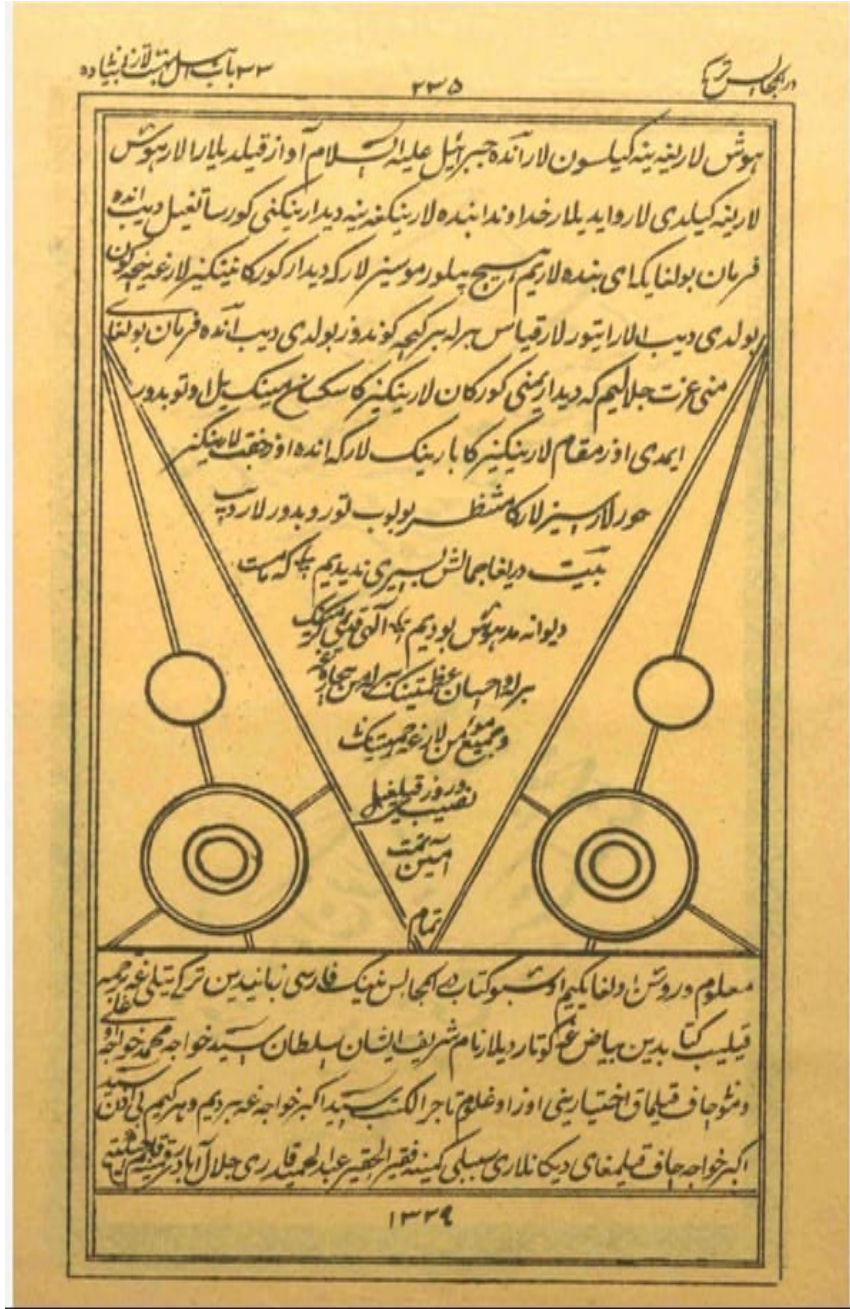 در المجالس ترکی
۲۳۵
۳۳ باب اهل بهشت لار نی بیانیده
هوش لاریغه ینه کیلسون لار آنده جبرائیل علیه السلام آواز قیلدیلار الار هوش
لارینه کیلدی لار و ایدیلار خداوندا بنده لارینکغه ینه دیدارینکنی کورساتغیل دیب انده
فرمان بولغایکه ای بنده لاریم هیچ بیلورموسیز لار که دیدار کورکانینکیز لارغه نیچه کون
بولدی دیب الار ایتور لار قیاس برله بر کیجه کوندوز بولدی دیب آنده فرمان بولغای
منی عزت جلالیم که دیداریمنی کورکان لارینکیز کا سکسان مینک ییل اوتوبدور
ایمدی اوز مقام لارینکیز کا بارینک لار که انده او جفت لارینکیز
حور لار سیز لار کا منتظر بولوب توروبدور لار دیب
بیت دریغا جمالش بسیری ندیدیم که مست
دیوانه مدهوش بودیم الهی
برله و احسان عظمتینک برله من بیچاره غه
و جمیع مؤمن لارغه جمیتینک
دور روز قیلغیل
نصیب
آمین تمت
تمام
معلوم و روشن اولغایکیم اوشبو کتاب در المجالس نینک فارسی زبانیدین ترکی تیلی غه ترجمه
قیلیب کتابدین بیاض غه کوتاردیلار نام شریف ایشان سلطان سید خواجه محمد خواجه اوغلی
ومنو چاف قیلماق اختیارینی اوز اوغلوم تاجر الکتب سید اکبر خواجه غه بردیم و هر کیم بی اذن سید
اکبر خواجه چاف قیلمغای دیکانلاری سببلی کمینه فقیر الحقیر عبد الحمید قادری جلال آباد
۱۳۲۹